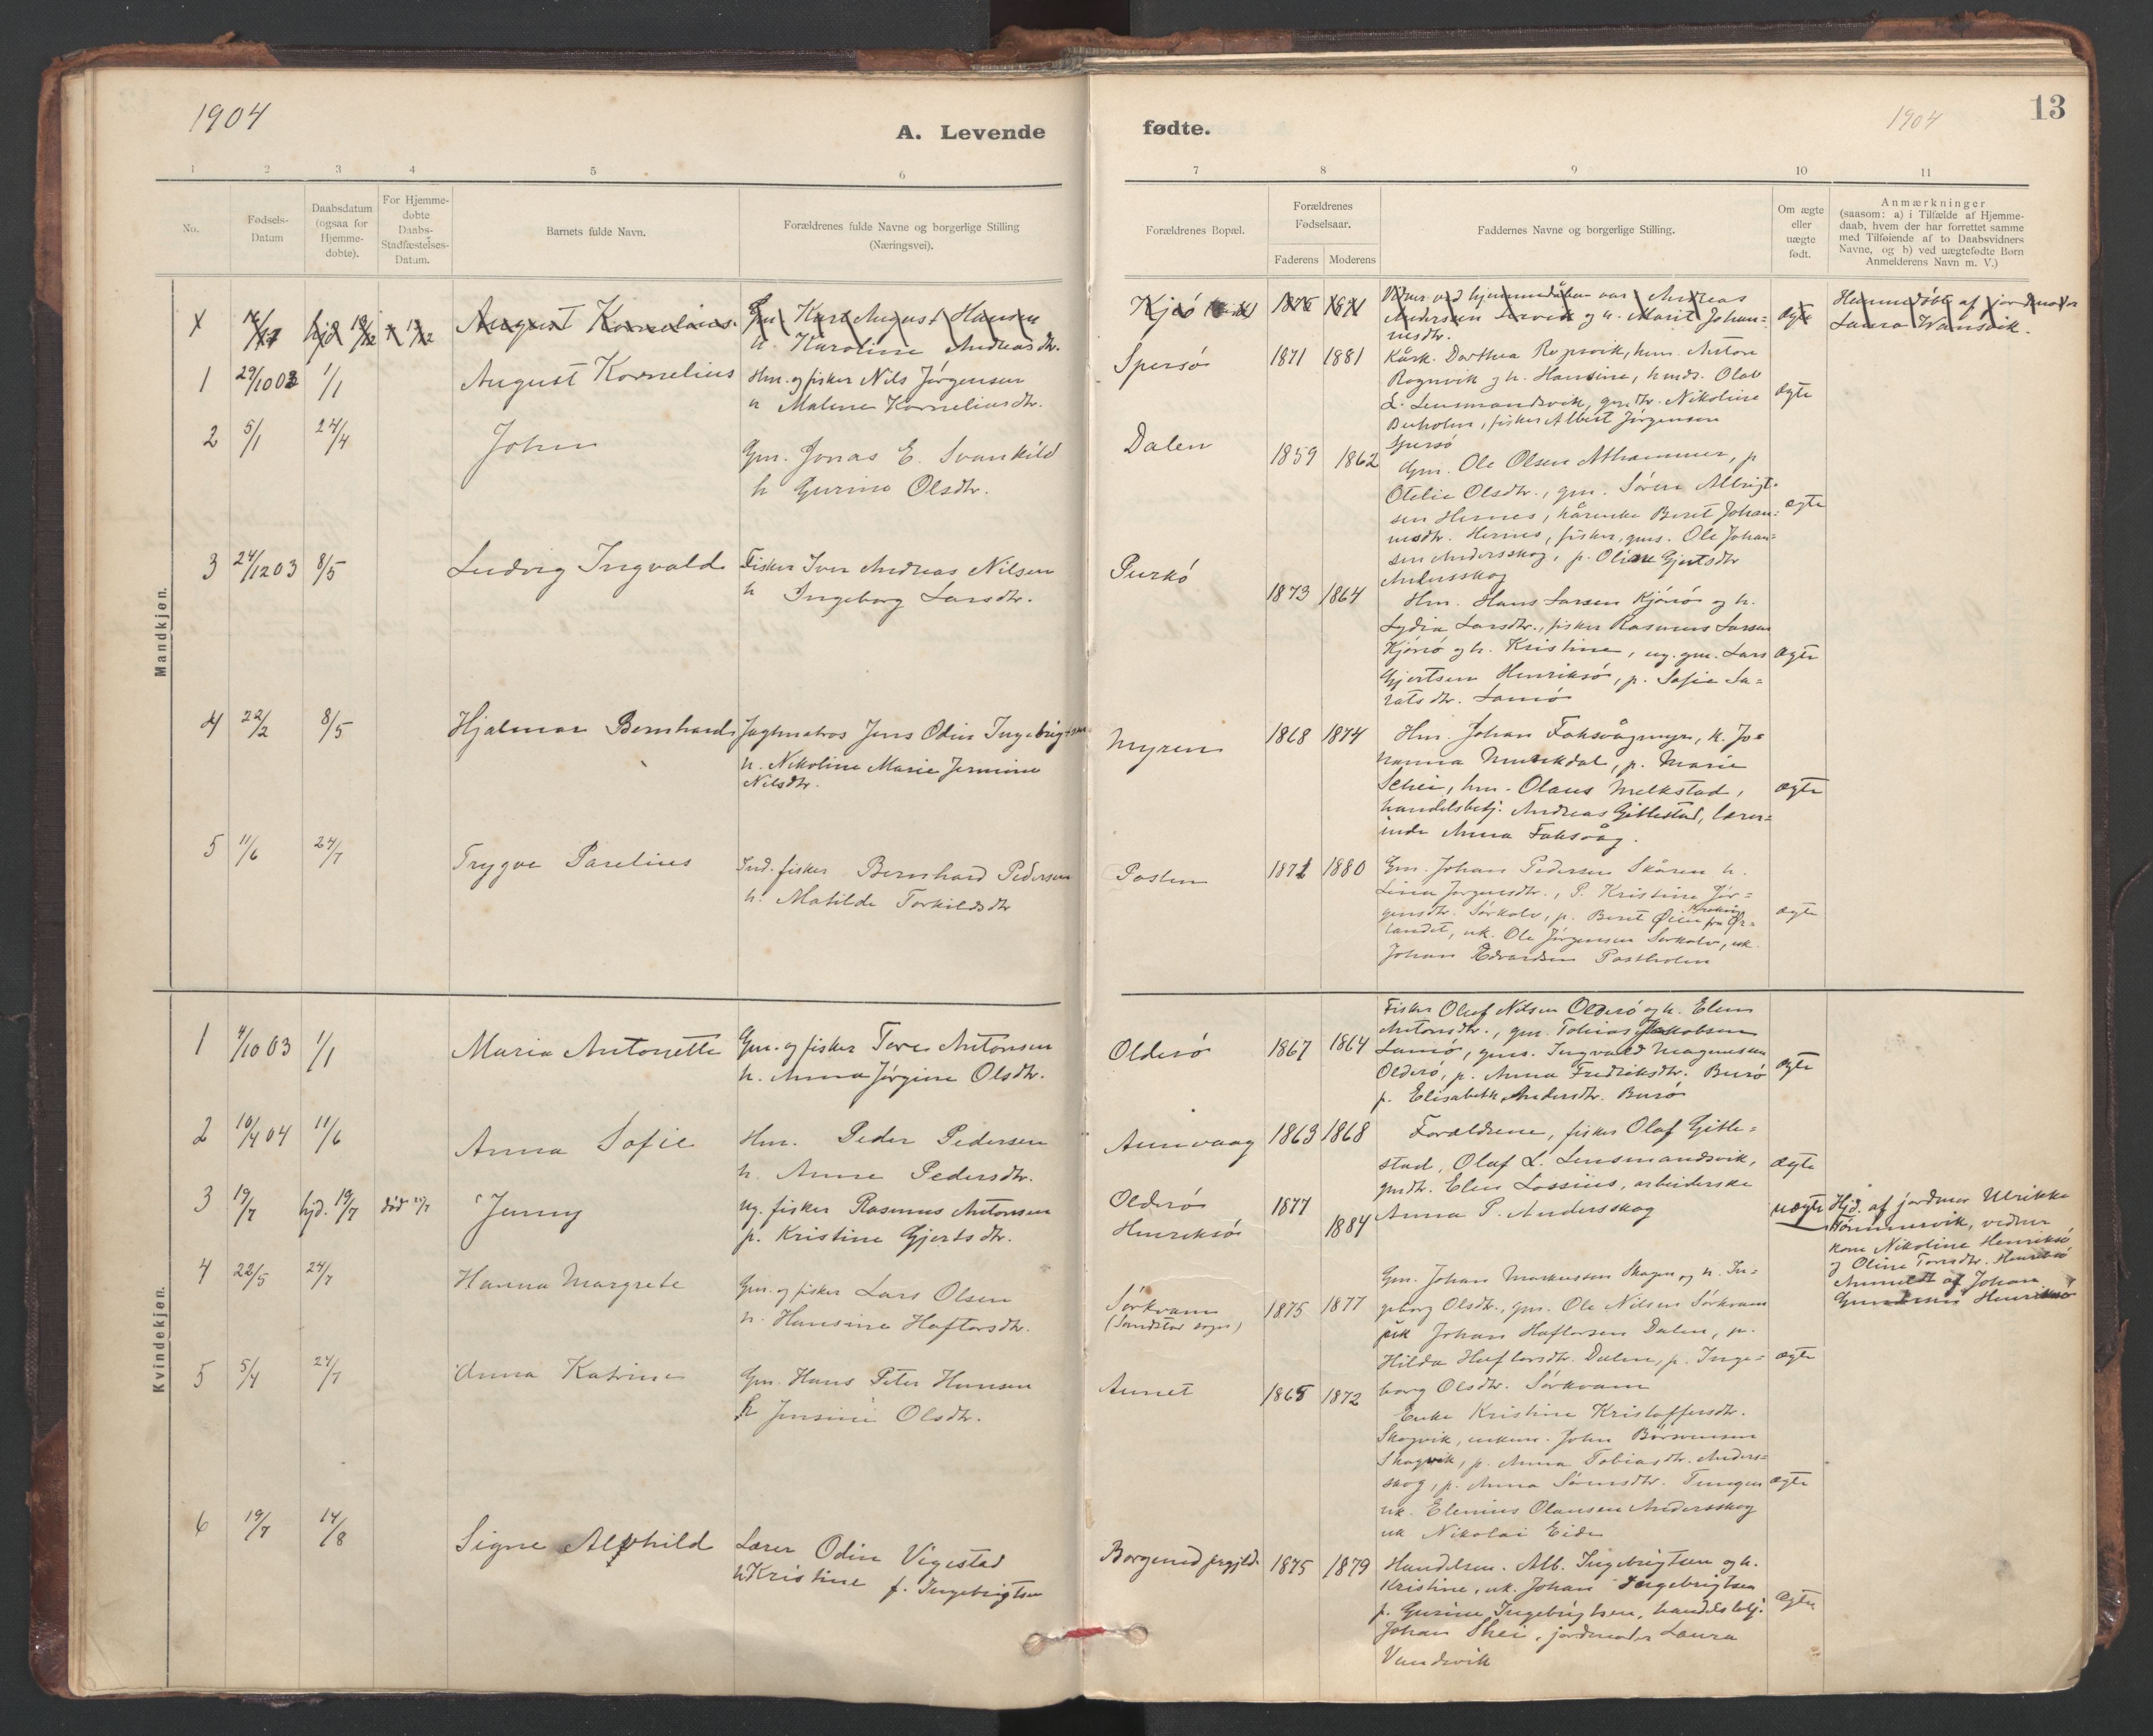 1904
A. Levende
fødte.
1904
13
1 2 3 4 5 6
7 8 9 10 11
No.
Fødsels-
Datum
Daabsdatum
(ogsaa for
Hjemme-
døbte).
For Hjemme-
døbte
Daabs-
Stadfæstelses-
Datum.
Barnets fulde Navn.
Forældrenes fulde Navne og borgerlige Stilling
(Næringsvei).
Forældrenes Bopæl.
Forældrenes
Fødselsaar.
Faderens Moderens
Faddernes Navne og borgerlige Stilling.
Om ægte
eller
uægte
født.
Anmærkninger
(saasom: a) i Tilfælde af Hjemme-
daab, hvem der har forrettet samme
med Tilføiende af to Daabsvidners
Navne, og b) ved uægtefødte Børn
Anmelderens Navn m. V.)
Mandkjøn.
August Kornelius.
Gm. Karl August Hansen
h. Karoline Andreasdtr.
Kjeø
Vidner ved hjemmedåben var Andreas
Andersen og h. Marit Johan=
nesdtr.
ægte
Hjemmedøbt af jordmoder
Laura Vandsvik.
1 29/10 03 1/1
August Kornelius
Hm. og fisker Nils Jørgensen
h Malene Korneliusdtr.
Spersø
1871 1881
Kårk. Dorthea Rognvik, hm. Anton
Rognvik og h. Hansine, hmds. Olav
L. Lensmandsvik, gmdtr. Nikoline
fisker Albert Jørgensen
Spersø
ægte
2 5/1 24/4
John
Gm. Jonas E. Svankild
h Gurine Olsdtr.
Dalen
1859 1862
Gm. Ole Olsen Althammer, p
Otelie Olsdtr., gm. Søren Albrigt=
sen Hernes, kårenke Beret Johan=
nesdtr. Hernes, fisker, gms. Ole Johan=
sen Andersskog, p. Oline Gjertsdtr
Andersskog
ægte
3 24/12 03 8/5
Ludvig Ingvald
Fisker Iver Andreas Nilsen
h Ingeborg Larsdtr.
Purkø
1873 1864
Hm. Hans Larsen Kjørsø og h.
Lydia Larsdtr., fisker Rasmus Larsen
Kjørsø og h. Kristine, ug. gm. Lars
Gjertsen Henriksø, p. Sofie La=
ratsdtr. Lamø
ægte
4 22/2 8/5
Hjalmar Bernhard
Jagtmatros Jens Odin Ingebrigtsen
h. Nikoline Marie Jermine
Nilsdtr.
Myren
1868 1874
Hm. Johan Faksvågmyr, k. Jo=
hanna Murkdal, p. Marie
Schei, hm. Olaus Melkstad,
handelsbetj. Andreas Gittestad, lærer=
inde Anna Faksvåg.
ægte
5 11/6 24/7
Trygve Parelius
Ind. fisker Bernhard Pedersen
h. Matilde Torkildsdtr
Posten
1871 1880
Gm. Johan Pedersen Skåren h.
Lina Jørgensdtr., P. Kristine Jør=
gensdtr. Sørkalv, p. Beret Øien fra Ør=
landet, uk. Ole Jørgensen Sørkalv, uk.
Johan Edvardsen Postholm
ægte
Kvindekjøn.
1 4/10 03 1/1
Maria Antonette
Gm. og fisker Tore Antonsen
h. Anna Jørgine Olsdtr.
Olderø
1867 1864
Fisker Oluf Nilsen Olderø og h. Elen
Antonsdtr., gm. Tobias Jakobsen
Lamø, gms. Ingvald Magnussen
Olderø, p. Anna Fredriksdtr. Burø
p. Elisabeth Andersdtr. Burø
ægte
2 10/4 04 11/6
Anna Sofie
Hm. Peder Pedersen
h. Anne Pedersdtr.
Aunvaag
1863 1868
Forældrene, fisker Olaf Gitte=
stad, Oluf L. Lensmandsvik,
gmdtr. Elen Lossius, arbeiderske
Anna P. Andersskog
ægte
3 19/7 hjd. 19/7 død
Jenny
Ug. fisker Rasmus Antonsen
p. Kristine Gjertsdtr.
Olderø
Henriksø
1877
1884
uægte
Hjd. af jordmor Ulrikke
Tømmervik, vidner
kone Nikoline Henriksø
og Oline Torsdtr. Henriksø
Anmeldt af Johan
Henriksø
4 22/5 24/7
Hanna Margrete
Gm. og fisker Lars Olsen
h. Hansine Haftorsdtr.
Sørkvam
(Sandstad sogn)
1875 1877
Gm. Johan Markussen Skagen og h. In=
geborg Olsdtr., gm. Ole Nilsen Sørkvam
uk Johan Haftorsen Dalen, p.
Hilda Haftorsdtr. Dalen, p. Inge=
borg Olsdtr. Sørkvam
ægte
5 5/4 24/7
Anna Katrine
Gm. Hans Peter Hansen
h Jensine Olsdtr.
Aunet
1865 1872
Enke Kristine Kristoffersdtr.
Skagvik, John
Skagvik, p. Anna Tobiasdtr. Anders=
skog, p. Anna Sørensdtr. Tungen
uk. Elenius Olausen Andersskog
uk Nikolai Eide
ægte
6 19/7 14/8
Signe Alfhild
Lærer Odin Vigestad
h Kristine f. Ingebrigtsen
Borgund prgjld.
1875 1879
Handelsm. Alb. Ingebrigtsen og h.
Kristine, uk. Johan Ingebrigtsen
p. Gurine Ingebrigtsen, handelsbetj.
Johan Shei, jordmoder Laura
Vandsvik
ægte